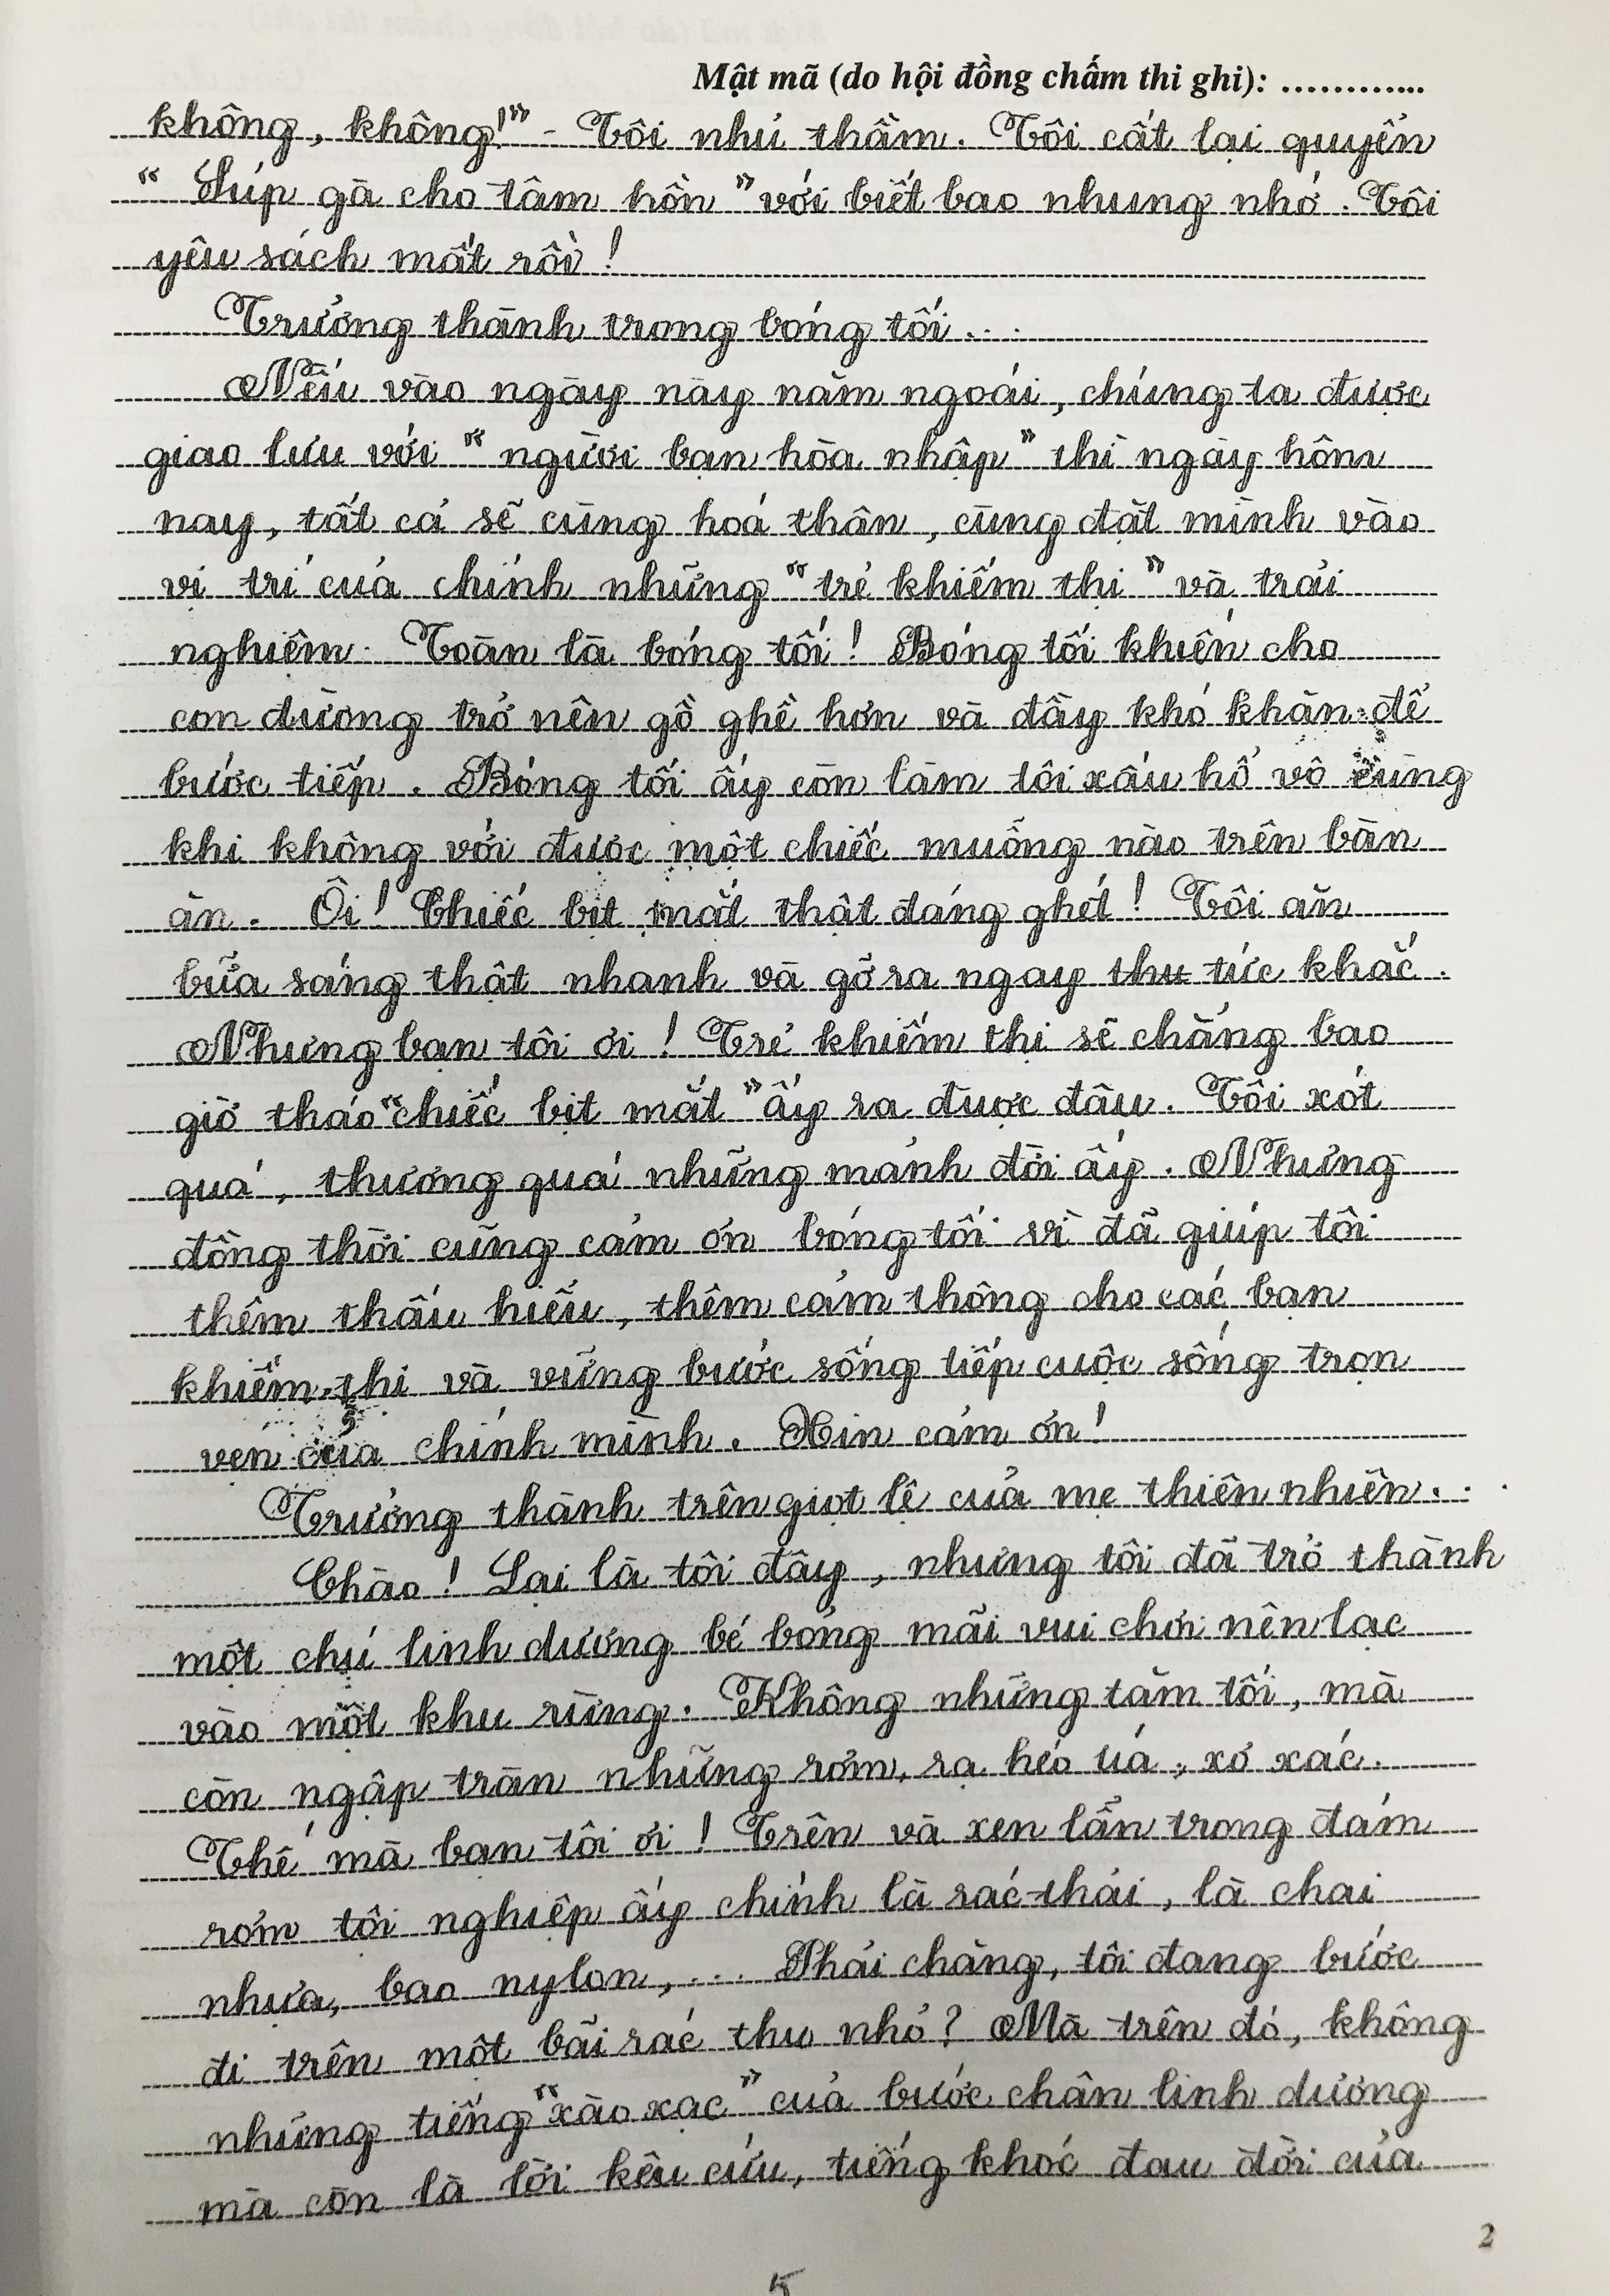 Mật mã (do hội đồng chấm thi ghi): ............
không, không!" - Tôi nhủ thầm. Tôi cất lại quyển
" Súp gà cho tâm hồn " với biết bao nhung nhớ. Tôi
yêu sách mất rồi !
Trưởng thành trong bóng tối...
Nếu vào ngày này năm ngoái, chúng ta được
giao lưu với " người bạn hòa nhập " thì ngày hôm
nay, tất cả sẽ cùng hoá thân, cùng đặt mình vào
vị trí của chính những " trẻ khiếm thị " và trải
nghiệm. Toàn là bóng tối ! Bóng tối khiến cho
con đường trở nên gồ ghề hơn và đầy khó khăn để
bước tiếp. Bóng tối ấy còn làm tôi xấu hổ vô cùng
khi không với được một chiếc muỗng nào trên bàn
ăn. Ôi ! Chiếc bịt mắt thật đáng ghét ! Tôi ăn
bữa sáng thật nhanh và gỡ ra ngay thu tức khắc.
Nhưng bạn tôi ơi ! Trẻ khiếm thị sẽ chẳng bao
giờ tháo "chiếc bịt mắt" ấy ra được đâu. Tôi xót
quá, thương quá những mảnh đời ấy. Nhưng
đồng thời cũng cảm ơn bóng tối vì đã giúp tôi
thêm thấu hiểu, thêm cảm thông cho các bạn
khiếm thị và vững bước sống tiếp cuộc sống trọn
vẹn của chính mình. Xin cảm ơn !
Trưởng thành trên giọt lệ của mẹ thiên nhiên...
Chào ! Lại là tôi đây, nhưng tôi đã trở thành
một chú linh dương bé bỏng mãi vui chơi nên lạc
vào một khu rừng. Không những tăm tối, mà
còn ngập tràn những rơm, rạ héo úa, xơ xác.
Thế mà bạn tôi ơi ! Trên và xen lẫn trong đám
rơm tội nghiệp ấy chính là rác thải, là chai
nhựa, bao nylon,... Phải chăng, tôi đang bước
đi trên một bãi rác thu nhỏ ? Mà trên đó, không
những tiếng "xào xạc" của bước chân linh dương
mà còn là lời kêu cứu, tiếng khóc đau đời của
2
5